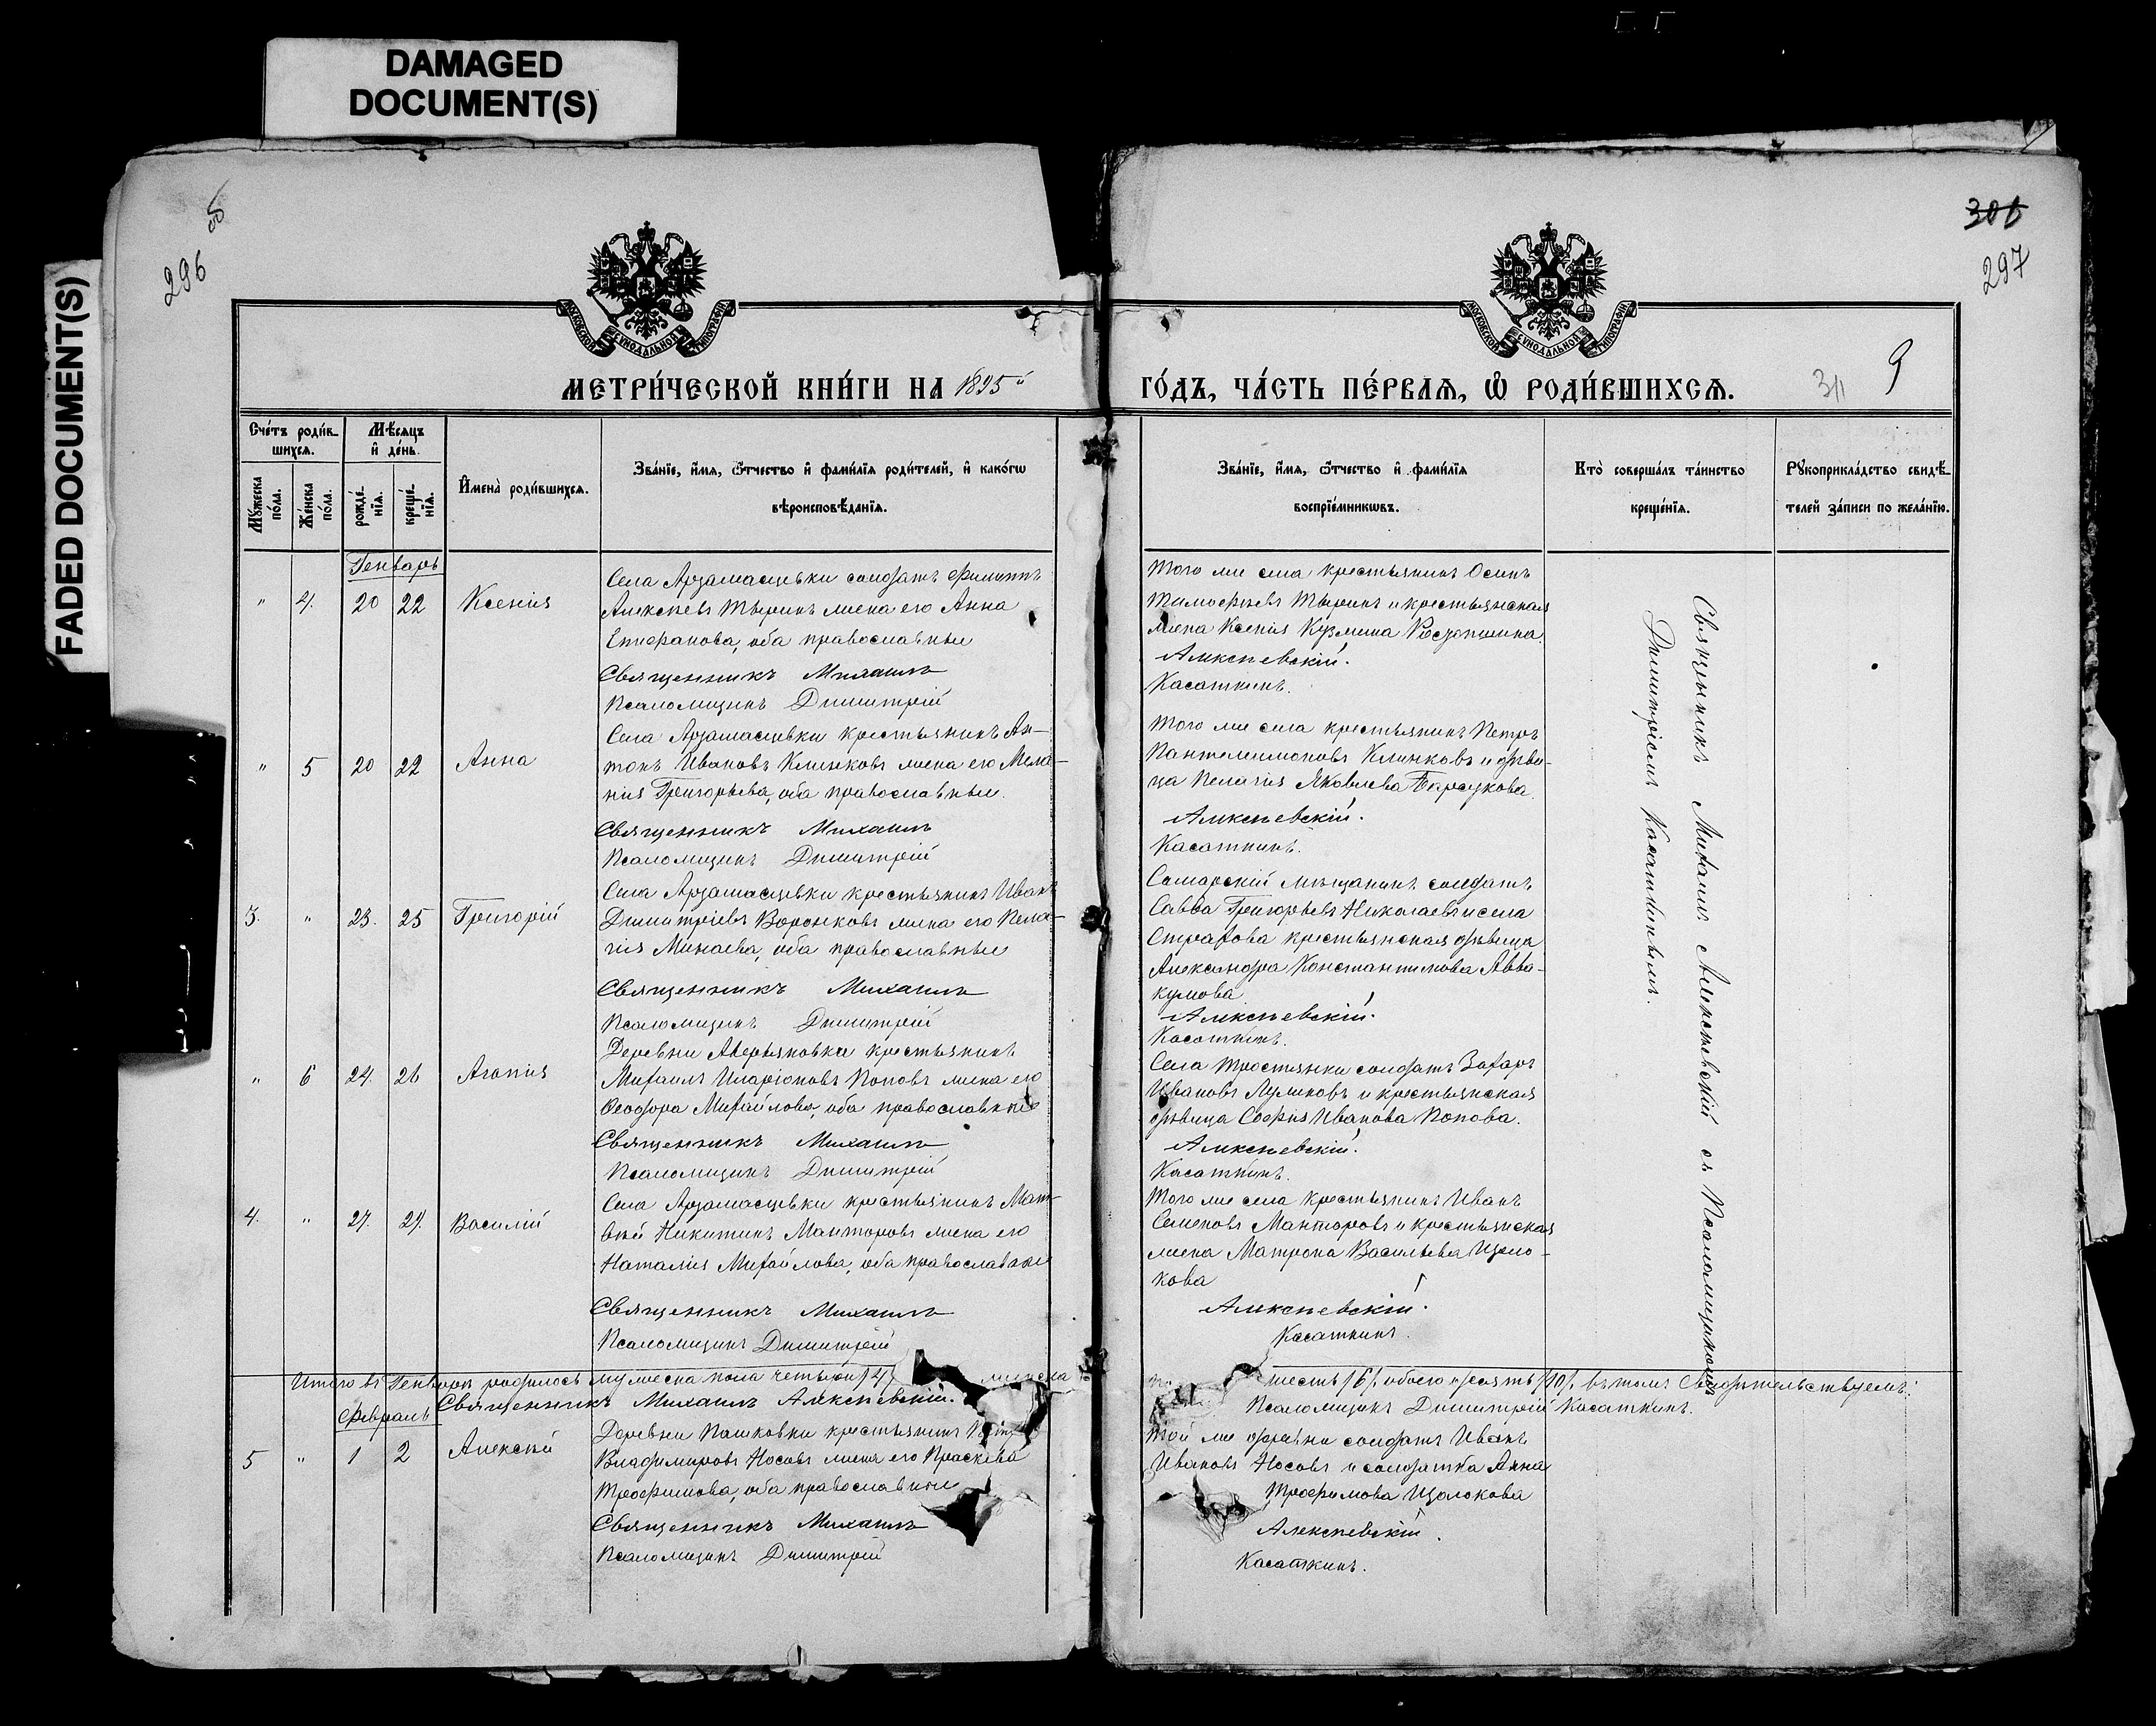 DAMAGED
DOCUMENT(S)
FADED DOCUMENT(S)
296 об
306
297
МОСКОВСКОЙ СѴНОДАЛЬНОЙ ТИПОГРАФІИ
МОСКОВСКОЙ СѴНОДАЛЬНОЙ ТИПОГРАФІИ
МЕТРИ́ЧЕСКОЙ КНИ́ГИ НА 1895й
ГО́ДЪ, ЧА́СТЬ ПЕ́РВАѦ, Ѡ҆ РОДИ́ВШИХСѦ.
9
Сче́тъ роди́в-
шихсѧ.
Мѣ́сѧцъ
и҆ де́нь.
Мꙋ́жеска
по́ла.
Же́нска
по́ла.
рожде́-
нїѧ.
креще́-
нїѧ.
И҆мена̀ роди́вшихсѧ.
Зва́нїе, и҆́мѧ, ѻ҆́тчество и҆ фами́лїѧ роди́телей, и҆ како́гѡ
вѣроисповѣ́данїѧ.
Зва́нїе, и҆́мѧ, ѻ҆́тчество и҆ фами́лїѧ
воспрїе́мникѡвъ.
Кто̀ соверша́лъ та́инство
креще́нїѧ.
Рꙋкоприкла́дство свидѣ́-
телей за́писи по жела́нїю.
Генварь
" 4. 20 22 Ксенія
Села Арзамасцевки солдатъ Филиппъ
Алексѣевъ Тыринъ жена его Анна
Епифанова, оба православные
Священникъ Михаилъ
Псаломщикъ Димитрій
Того же села крестьянинъ Осипъ
Тимофѣевъ Тыринъ и крестьянская
жена Ксенія Кузмина
Алексѣевскій.
Касаткинъ.
" 5 20 22 Анна
Села Арзамасцевки крестьянинъ Ан-
тонъ Ивановъ Клинковъ жена его Мела-
нія Григорьева, оба православные.
Священникъ Михаилъ
Псаломщикъ Димитрій
Того же села крестьянинъ Петръ
Пантелеимоновъ Клинковъ и дѣви-
ца Пелагія Яковлева Барсукова.
Алексѣевскій.
Касаткинъ.
3. " 23. 25 Григорій
Села Арзамасцевки крестьянинъ Иванъ
Димитріевъ Воронковъ жена его Пела-
гія Минаева, оба православные
Священникъ Михаилъ
Псаломщикъ Димитрій
Самарскій мѣщанинъ солдатъ
Савва Григорьевъ Николаевъ и села
Страхова крестьянская дѣвица
Александра Константинова Авва-
кумова
Алексѣевскій.
Касаткинъ.
" 6 24. 26 Агапія
Деревни Аверьяновки крестьянинъ
Михаилъ Иларіоновъ Поповъ жена его
Ѳеодора Михайлова, оба православные
Священникъ Михаилъ
Псаломщикъ Димитрій
Села Тростянки солдатъ Захаръ
Ивановъ и крестьянская
дѣвица Софія Иванова Попова.
Алексѣевскій.
Касаткинъ.
4. " 27. 27. Василій
Села Арзамасцевки крестьянинъ Мат-
вѣй Никитинъ Манторовъ жена его
Наталія Михайлова, оба православные
Священникъ Михаилъ
Псаломщикъ Димитрій
Того же села крестьянинъ Иванъ
Семеновъ Манторовъ и крестьянская
жена Матрона Васильева Щело-
кова
Алексѣевскій.
Касаткинъ.
Священникъ Михаилъ Алексѣевскій съ Псаломщикомъ
Димитріемъ Касаткинымъ.
Итого въ Генварѣ родилось мужеска пола четыре /4/ женска
шесть /6/, обоего десять /10/, въ томъ свидѣтельствуемъ:
Священникъ Михаилъ Алексѣевскій.
Псаломщикъ Димитрій Касаткинъ.
Февраль
5 " 1 2 Алексій
Деревни Пашковки крестьянинъ
Владимировъ Носовъ жена его Праскева
Трофимова, оба православные
Священникъ Михаилъ
Псаломщикъ Димитрій
Той же деревни солдатъ Иванъ
Ивановъ Носовъ и солдатка Анна
Трофимова Щолокова
Алексѣевскій.
Касаткинъ.